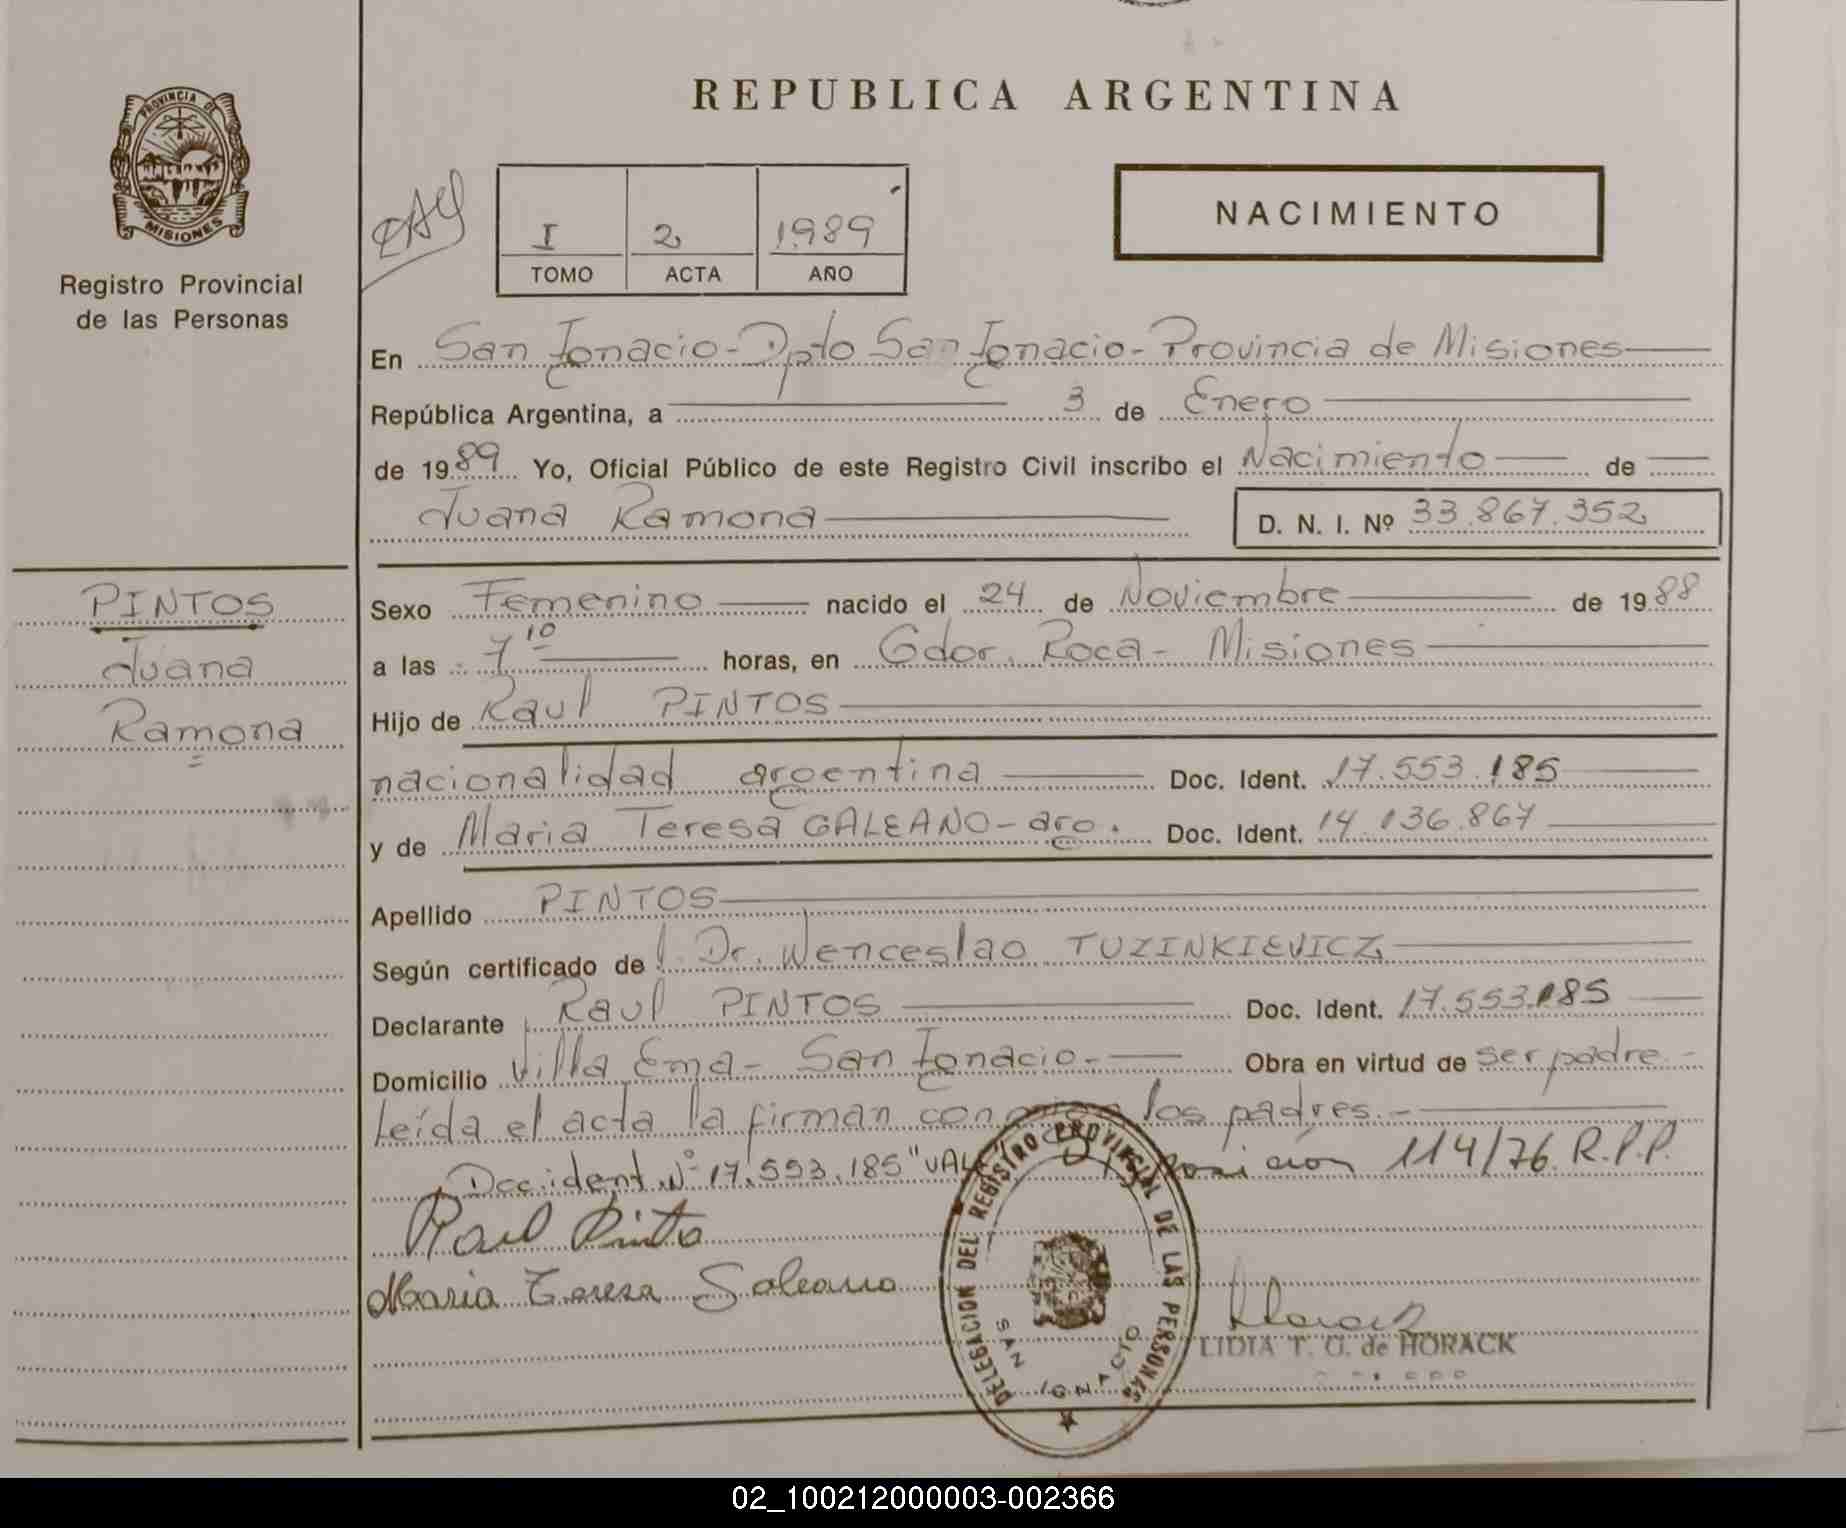 PROVINCIA DE
MISIONES
Registro Provincial
de las Personas
REPUBLICA ARGENTINA
I 2 1989
TOMO ACTA AÑO
NACIMIENTO
En San Ignacio - Dpto San Ignacio - Provincia de Misiones
República Argentina, a 3 de Enero
de 1989 Yo, Oficial Público de este Registro Civil inscribo el Nacimiento de
Juana Ramona D. N. I. Nº 33.867.352
PINTOS
Juana
Ramona
Sexo Femenino nacido el 24 de Noviembre de 1988
a las 7 10 horas, en Gdor. Roca - Misiones
Hijo de Raul PINTOS
nacionalidad argentina Doc. Ident. 17.553.185
y de Maria Teresa GALEANO - arg. Doc. Ident. 14.136.867
Apellido PINTOS
Según certificado del Dr. Wenceslao TUZINKIEVICZ
Declarante Raul PINTOS Doc. Ident. 17.553.185
Domicilio Villa Ema - San Ignacio.- Obra en virtud de ser padre.-
Leída el acta la firman conmigo los padres.-
Doc. ident. Nº 17.553.185 "VALE" Disposición 114/76. R.P.P.
Raul Pinto
Maria Teresa Galeano
DELEGACION DEL REGISTRO PROVINCIAL DE LAS PERSONAS
SAN IGNACIO
LIDIA T. G. de HORACK
02_100212000003-002366